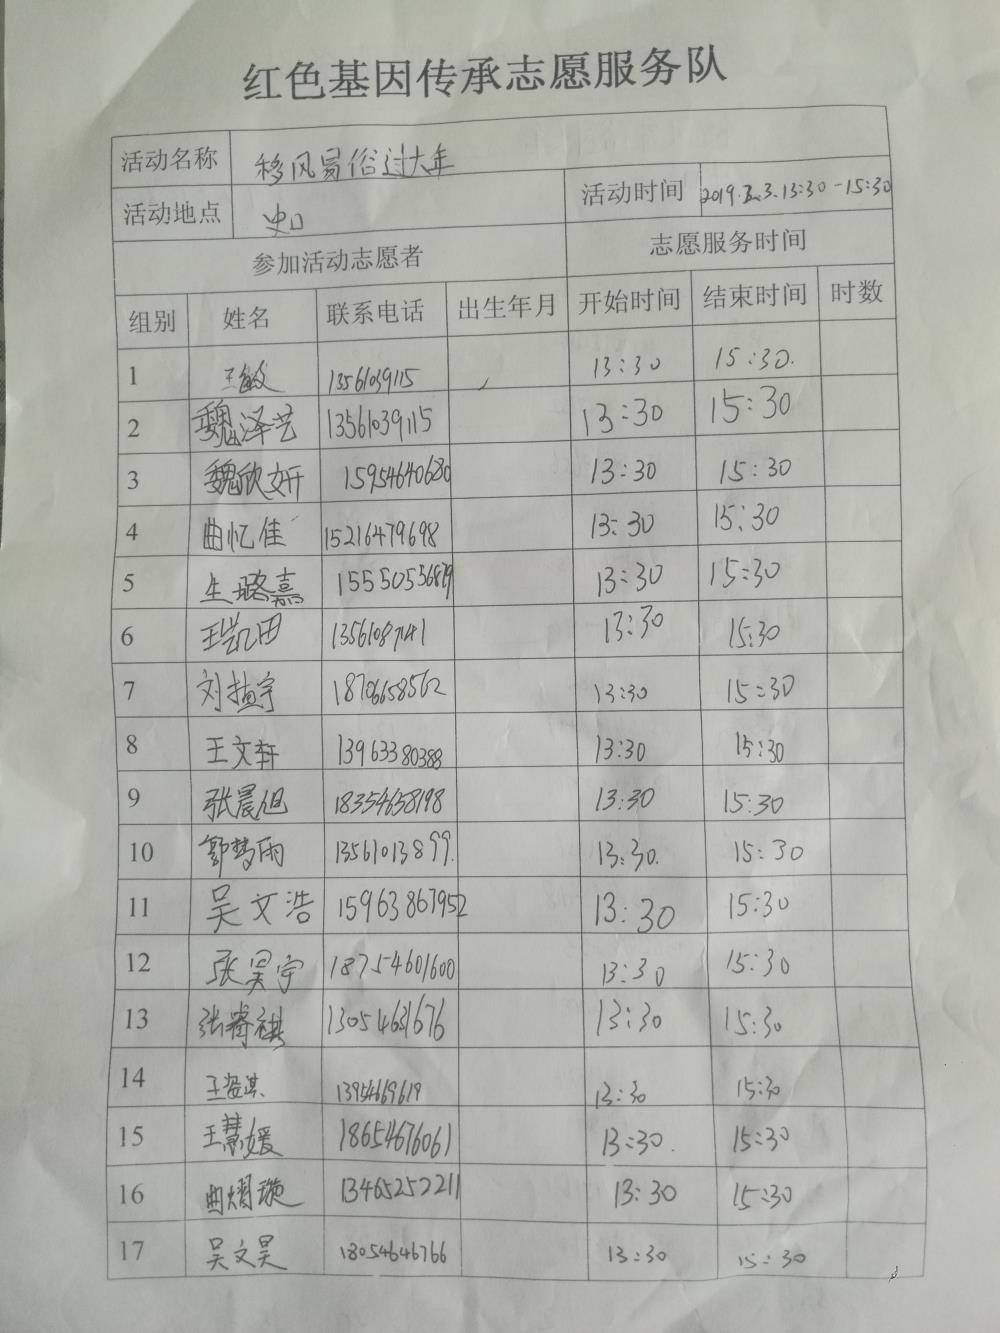 红色基因传承志愿服务队
活动名称 移风易俗过大年
活动地点 史口 活动时间 2019.2.3.13:30-15:30
参加活动志愿者 志愿服务时间
组别 姓名 联系电话 出生年月 开始时间 结束时间 时数
1 王敏 13561039115 13:30 15:30.
2 魏泽艺 13561039115 13:30 15:30
3 魏欣妍 15954640680 13:30 15:30
4 曲忆佳 15216479698 13:30 15:30
5 生璐嘉 13:30 15:30
6 王凯田 13:30 15:30
7 18706658562 13:30 15:30
8 王文轩 13963380388 13:30 15:30
9 张晨旭 18354658198 13:30 15:30
10 郭梦雨 13561013899. 13:30. 15:30
11 吴文浩 15963867952 13:30 15:30
12 张昊宇 18754601600 13:30 15:30
13 张睿祺 13054631676 13:30 15:30
14 13:30 15:30
15 王慧媛 18654676061 13:30. 15:30
16 曲熠璇 13465252211 13:30 15:30
17 吴文昊 18054646766 13:30 15:30